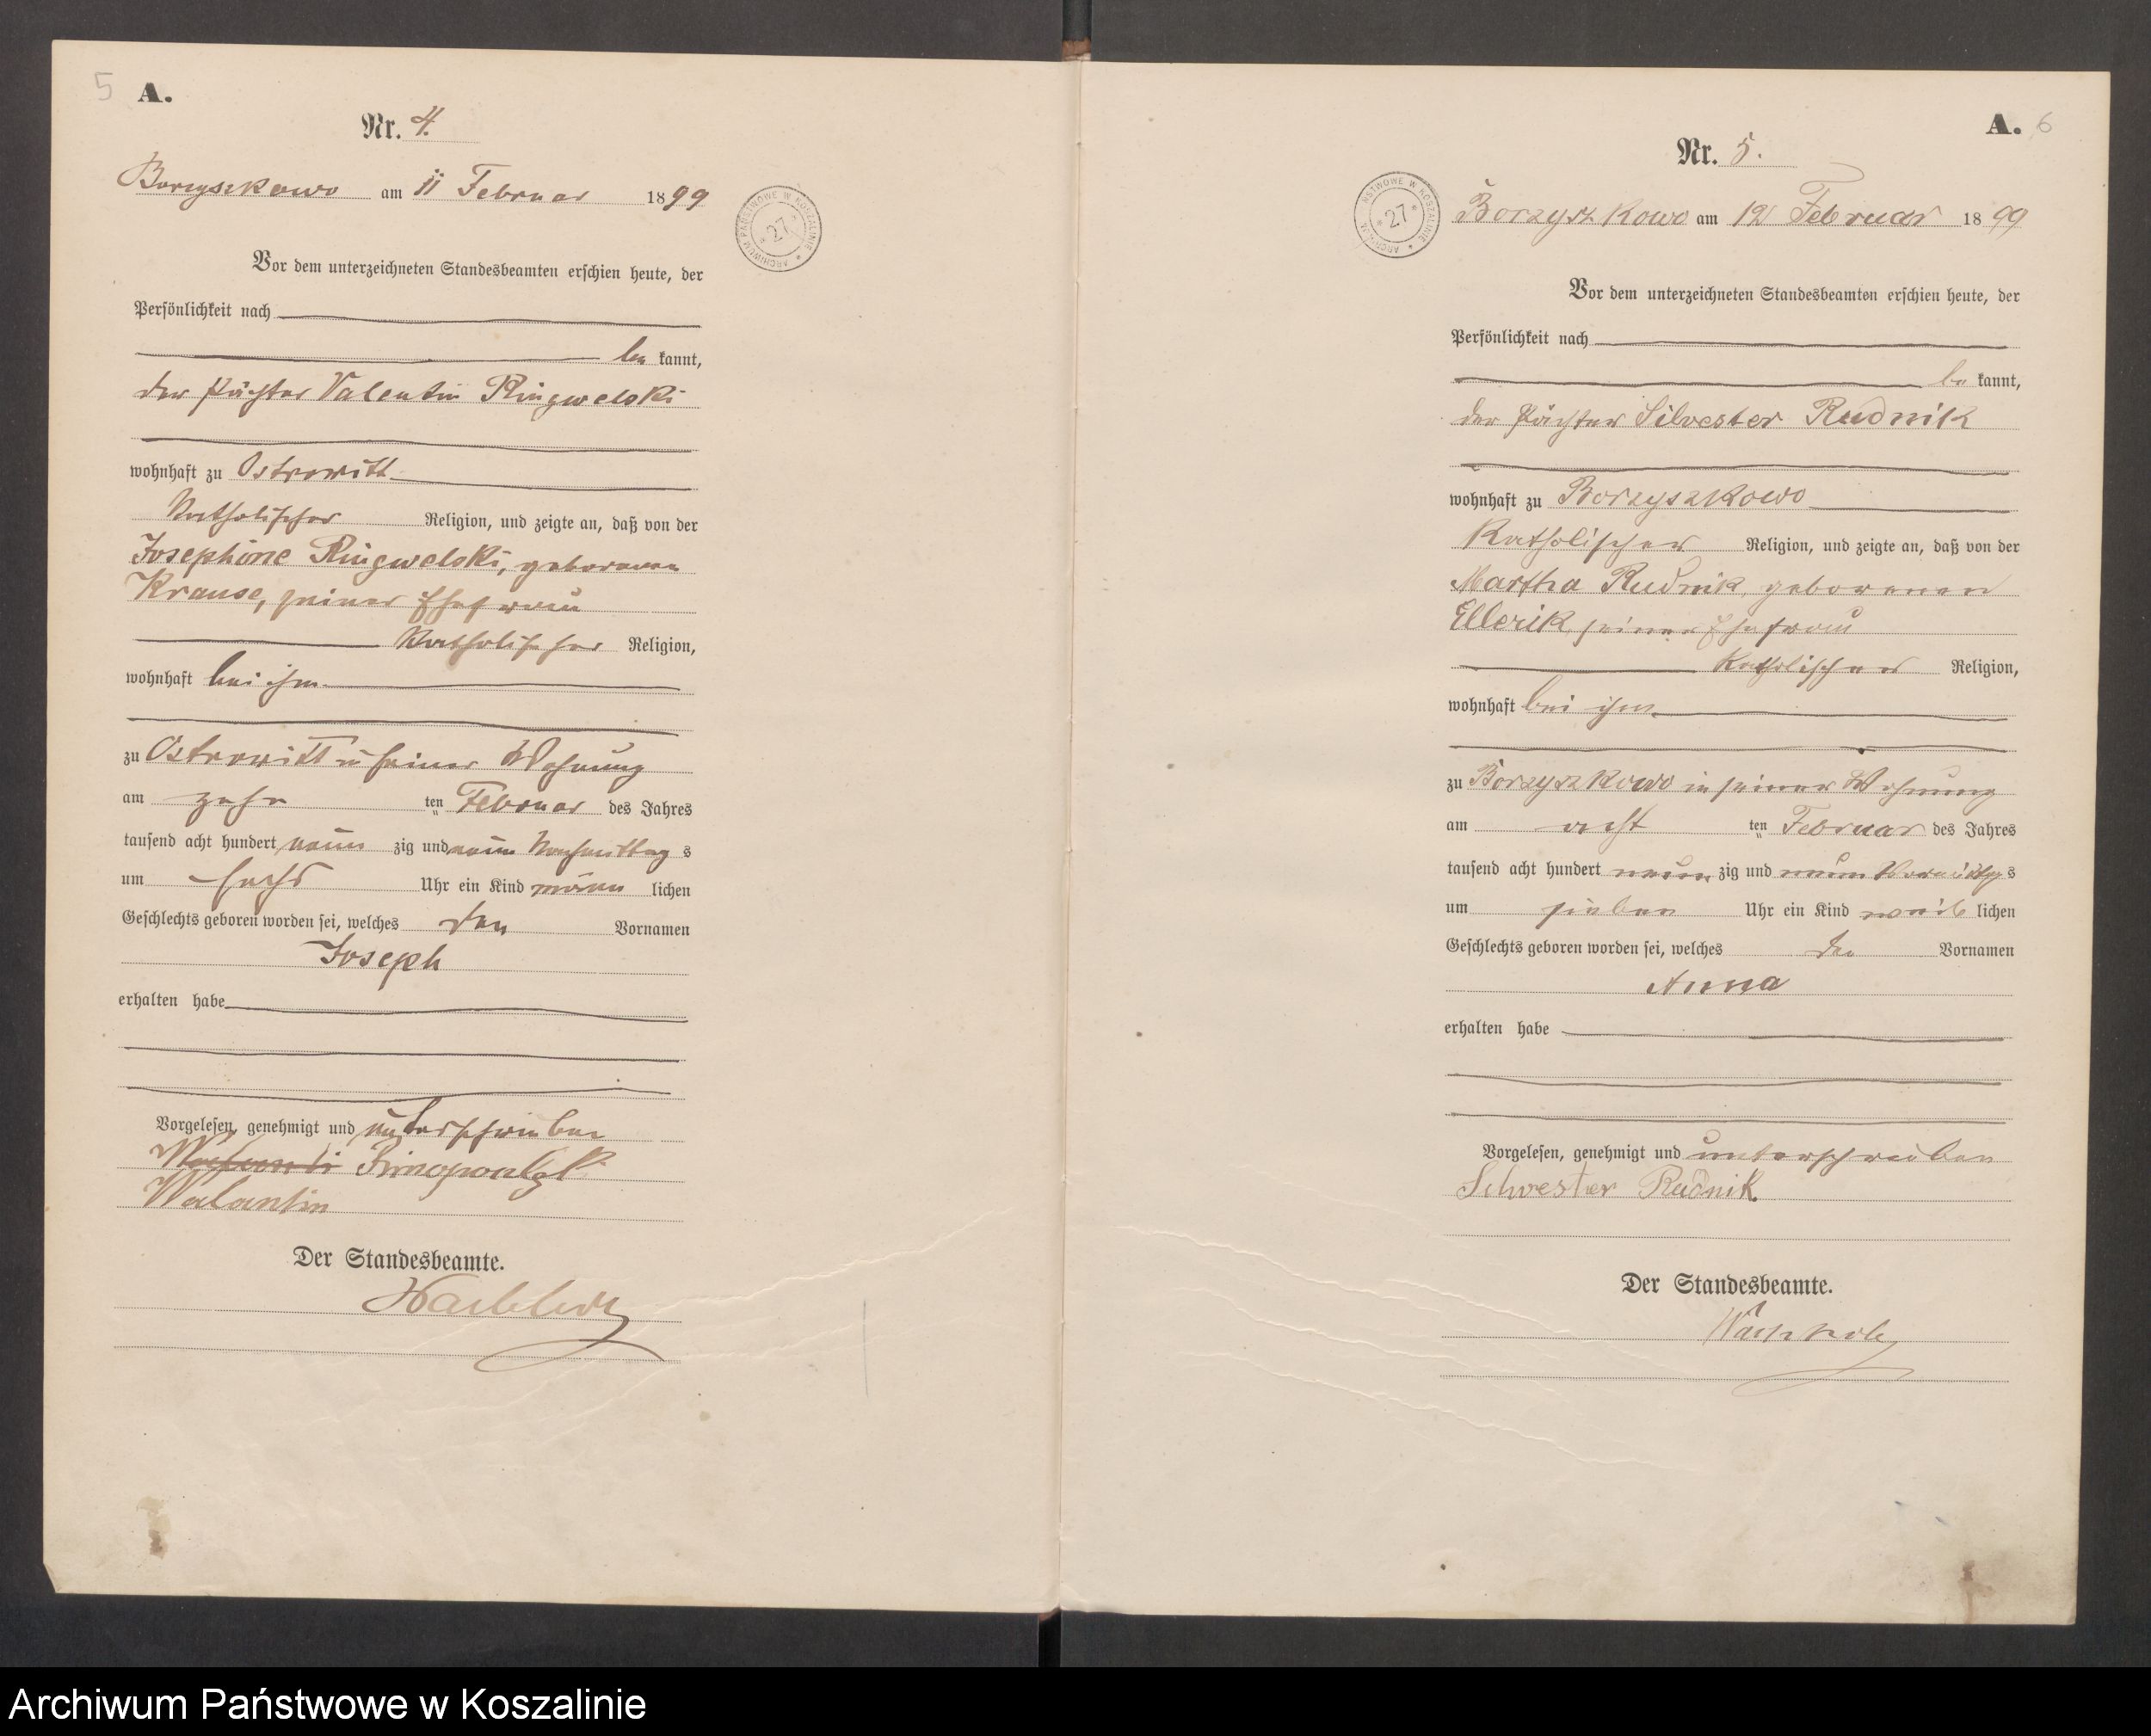 5 A.
Nr. 4.
Borzyszkowo am 11 Februar 1899
ARCHIWUM PAŃSTWOWE W KOSZALINIE * 27 *
Vor dem unterzeichneten Standesbeamten erschien heute, der
Persönlichkeit nach
be kannt,
der Pächter Valentin Ringwelski
wohnhaft zu Ostrowitt
Katholischer Religion, und zeigte an, daß von der
Josephine Ringwelski, geborenen
Krause, seiner Ehefrau
Katholischer Religion,
wohnhaft bei ihm
zu Ostrowitt in seiner Wohnung
am zehn ten Februar des Jahres
tausend acht hundert neun zig und neun Nachmittag s
um sechs Uhr ein Kind männ lichen
Geschlechts geboren worden sei, welches den Vornamen
Joseph
erhalten habe
Vorgelesen, genehmigt und unterschrieben
Walantin
Der Standesbeamte.
A. 6
Nr. 5.
ARCHIWUM PAŃSTWOWE W KOSZALINIE * 27 *
Borzyszkowo am 12 Februar 1899
Vor dem unterzeichneten Standesbeamten erschien heute, der
Persönlichkeit nach
be kannt,
der Pächter Silvester Rudnik
wohnhaft zu Borzyszkowo
Katholischer Religion, und zeigte an, daß von der
Martha Rudnik, geborenen
Ellerik, seiner Ehefrau
Katholischer Religion,
wohnhaft bei ihm
zu Borzyszkowo in seiner Wohnung
am acht ten Februar des Jahres
tausend acht hundert neun zig und neun Vormittag s
um sieben Uhr ein Kind weib lichen
Geschlechts geboren worden sei, welches den Vornamen
Anna
erhalten habe
Vorgelesen, genehmigt und unterschrieben
Silvester Rudnik
Der Standesbeamte.
Archiwum Państwowe w Koszalinie